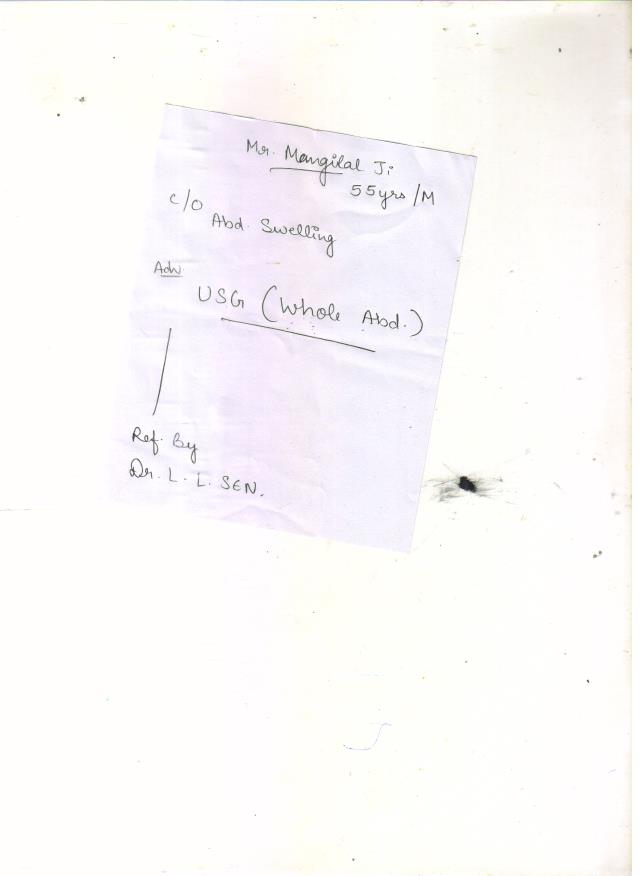 Mr. Mangilal Ji
55yrs/M
c/o
Abd. Swelling
Adv.
USG (Whole Abd.)
Ref. By
Dr. L. L. SEN.